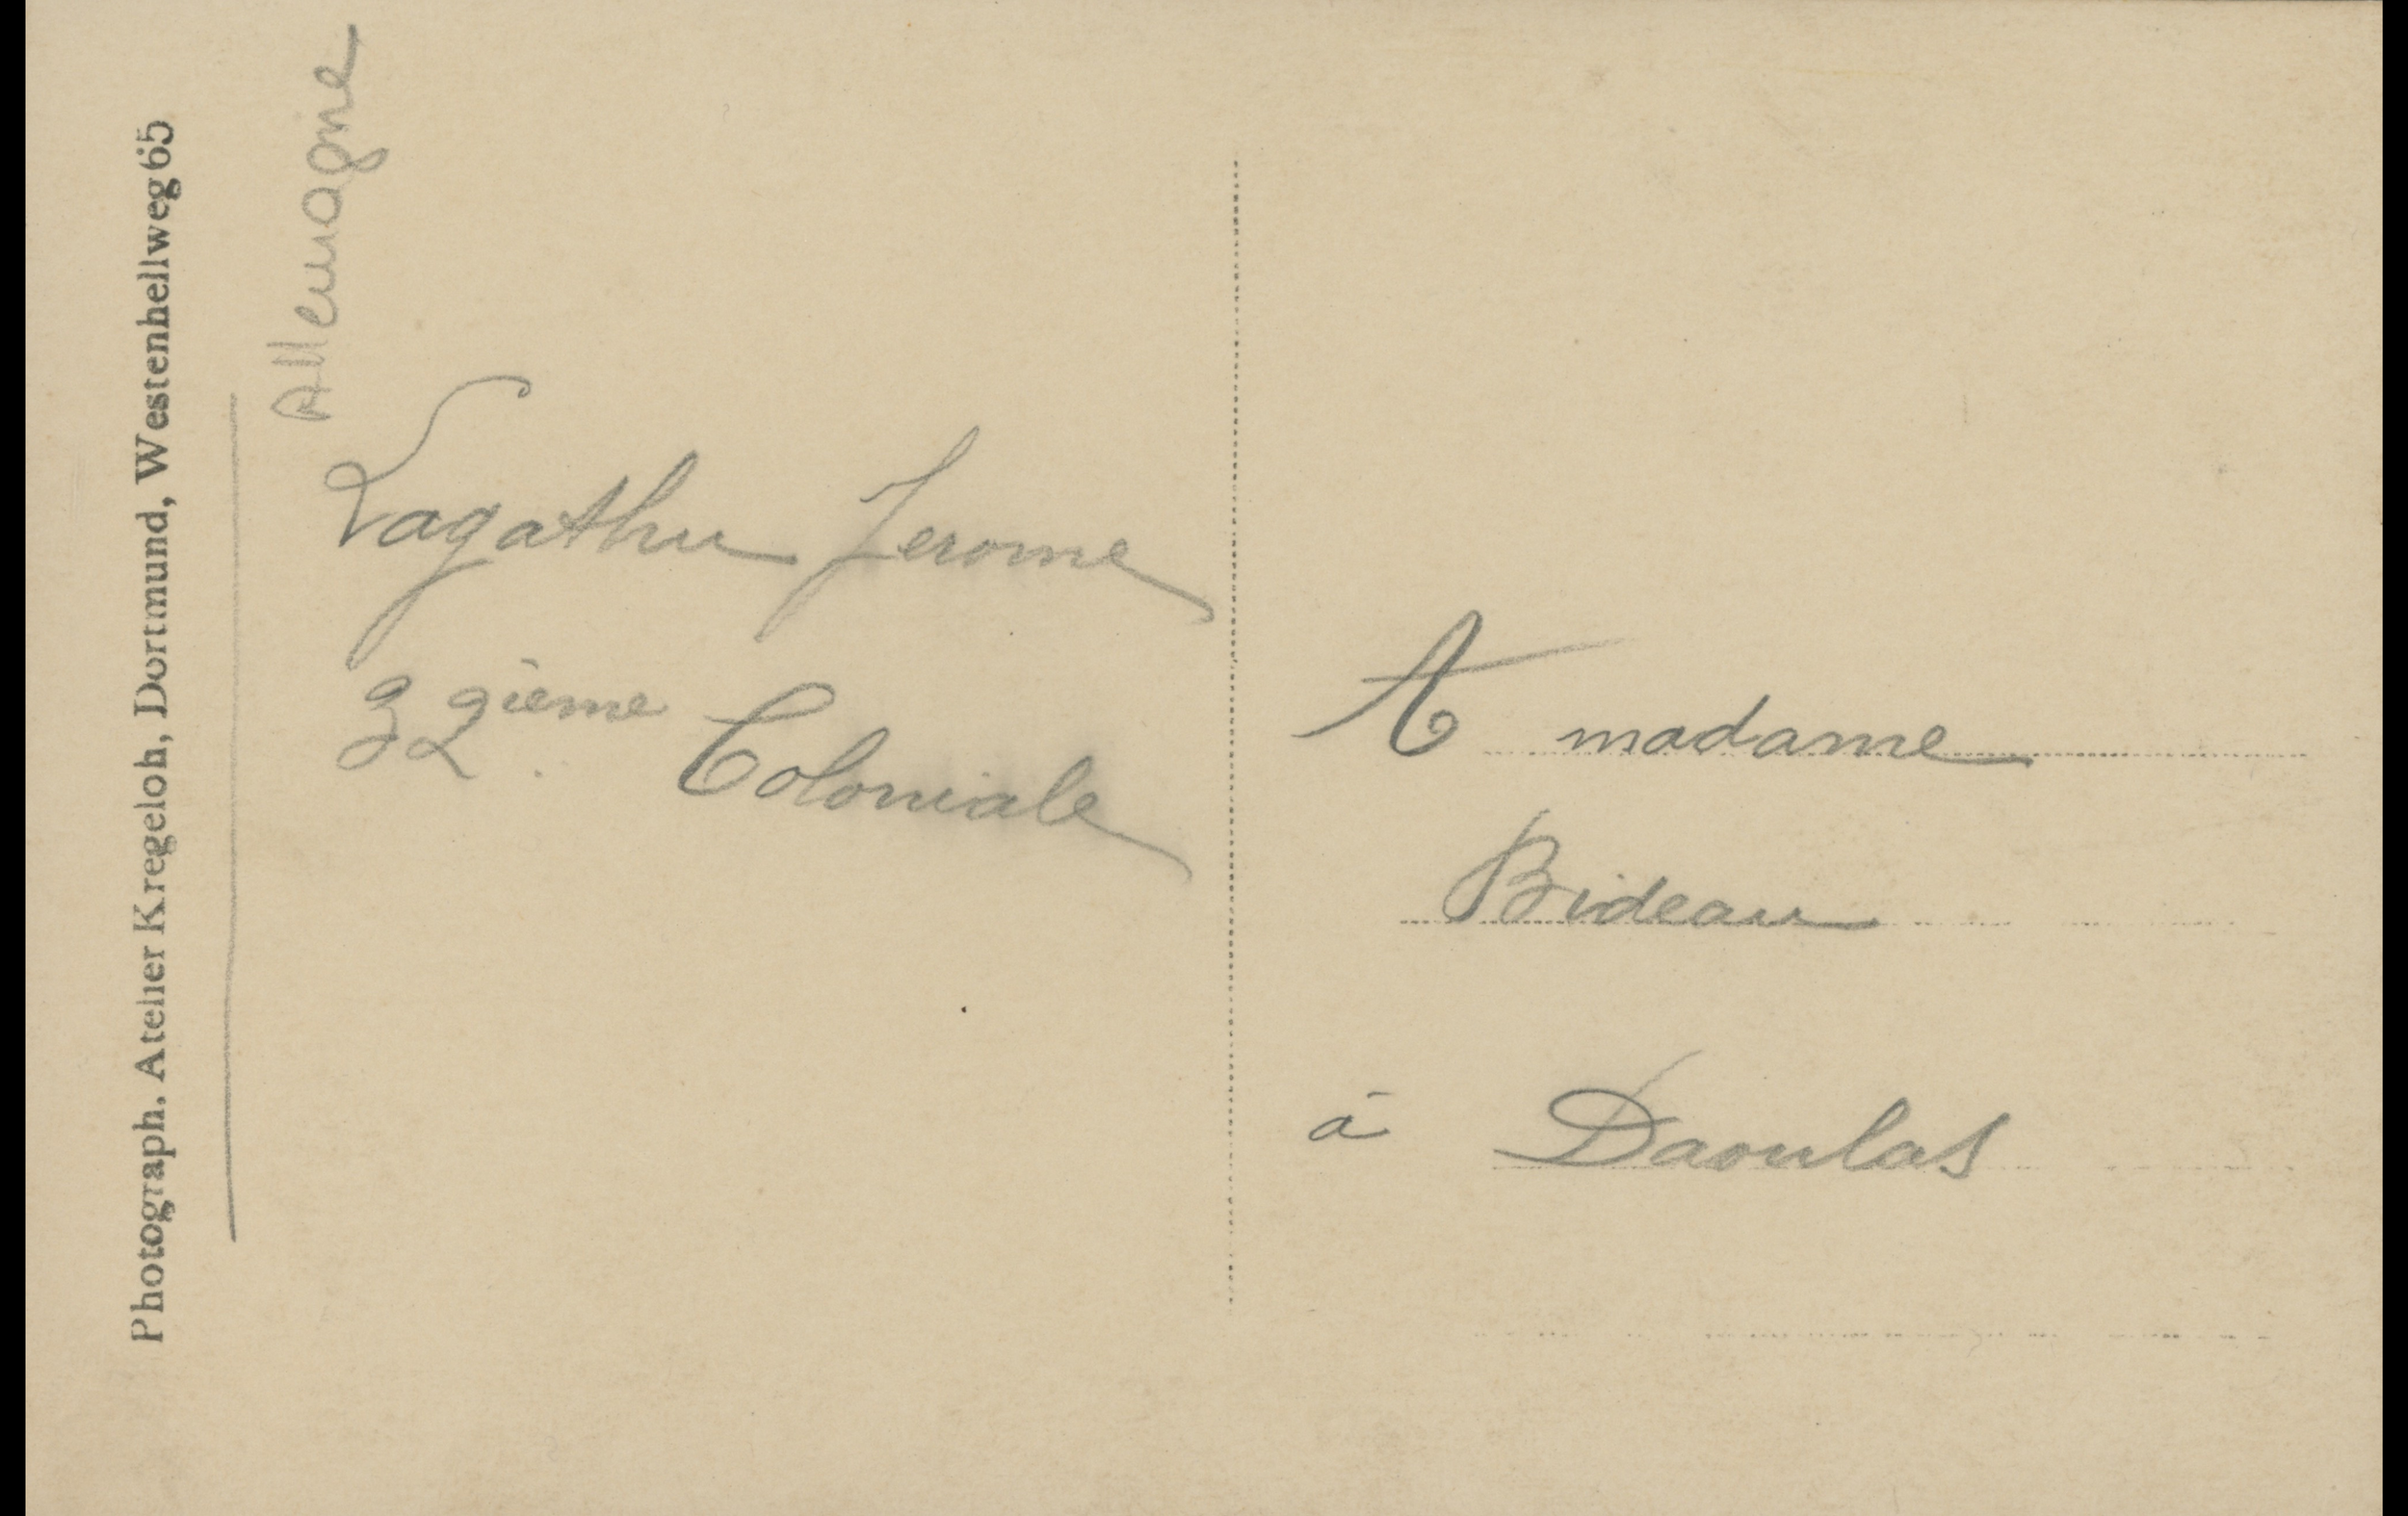 Photograph. Atelier Kregeloh, Dortmund, Westenhellweg 65
Allemagne
Lagathu Jerome
32 gieme Coloniale
A madame
Bideau
à Daoulas